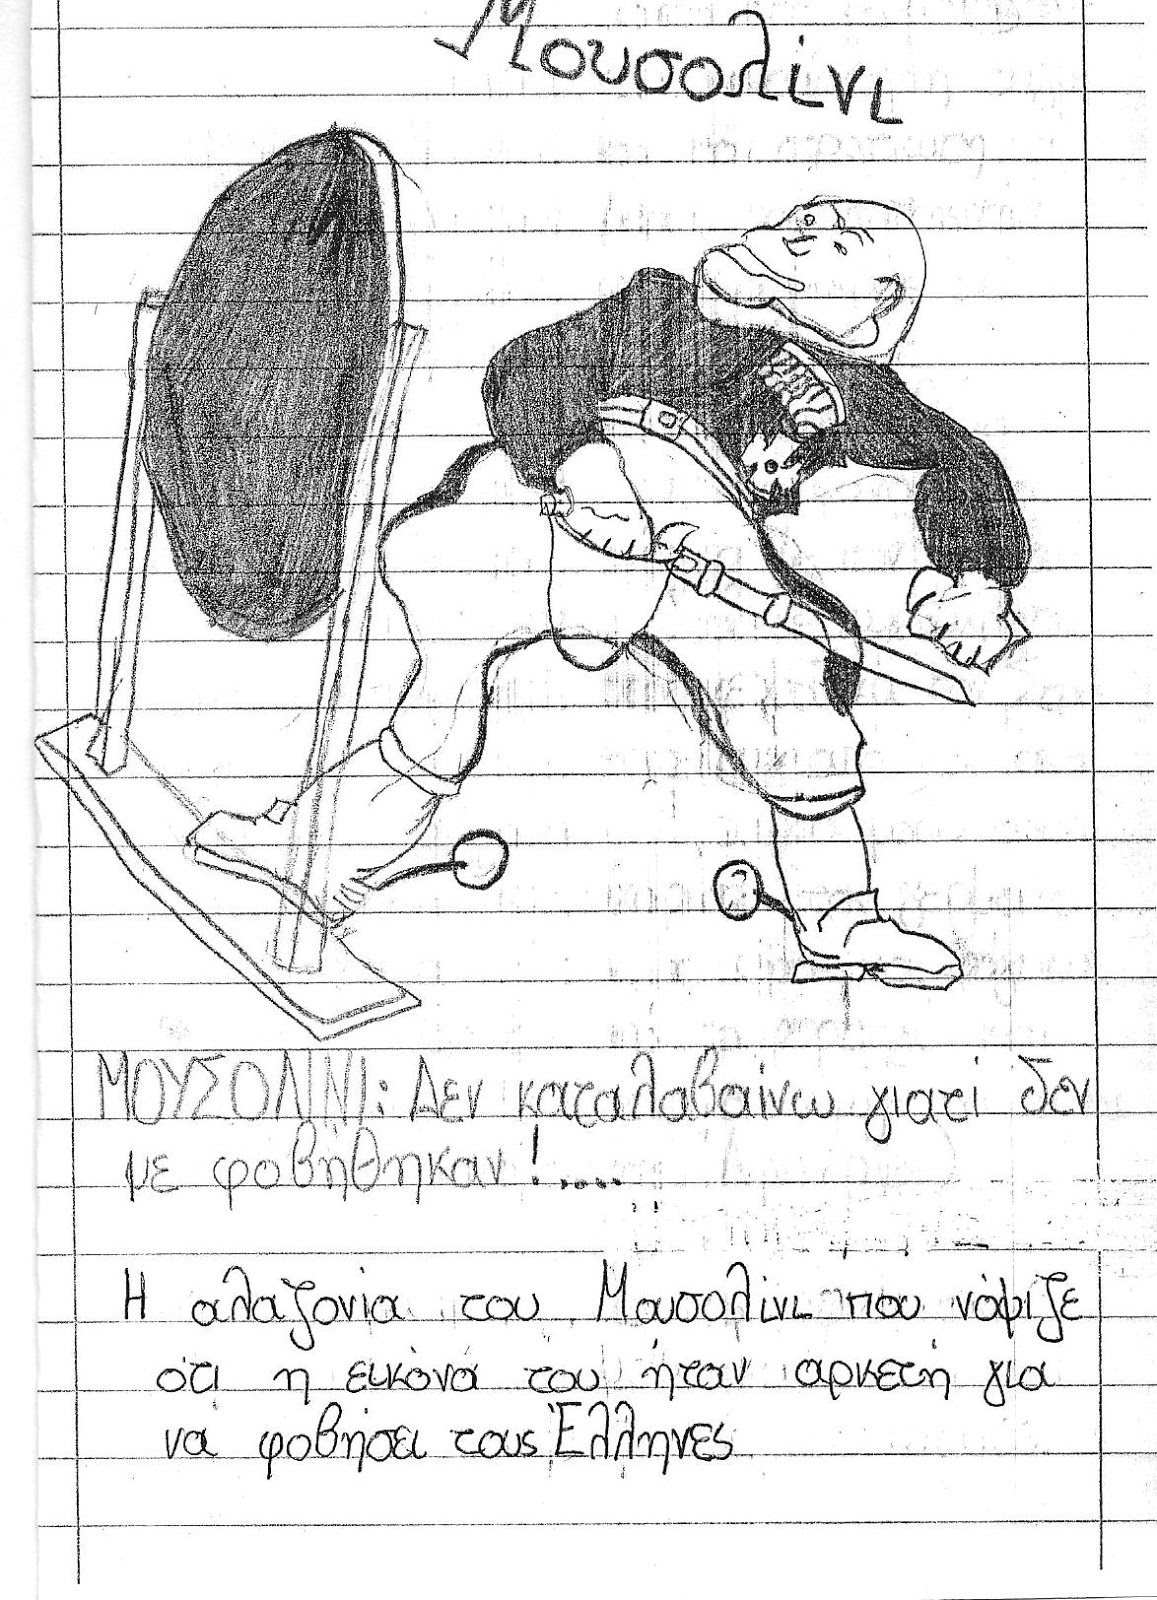 Μουσολίνι
ΜΟΥΣΟΛΙΝΙ: Δεν καταλαβαίνω γιατί δεν
με φοβήθηκαν!.....
Η αλαζονία του Μουσολίνι που νόμιζε
ότι η εικόνα του ήταν αρκετή για
να φοβήσει τους Έλληνες